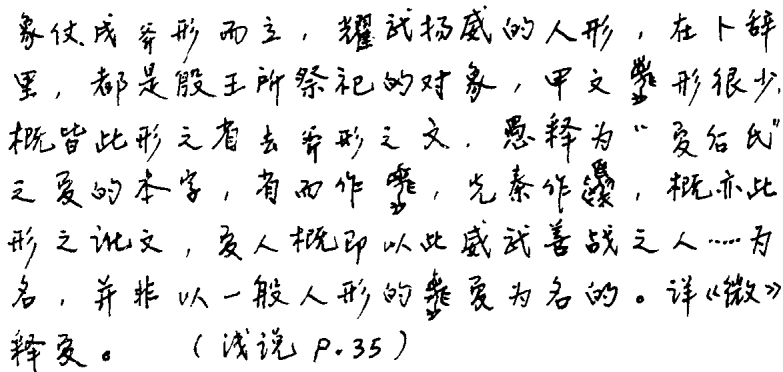 象仗戌斧形而立，耀武扬威的人形，在卜辞
里，都是殷王所祭祀的对象，甲文形很少，
概皆此形之省去斧形之文．愚释为“夏后氏”
之夏的本字，省而作，先秦作，概亦此
形之讹文，夏人概即以此威武善战之人……为
名，并非以一般人形的夏为名的。详《微》
释夏。（浅说 P.35）